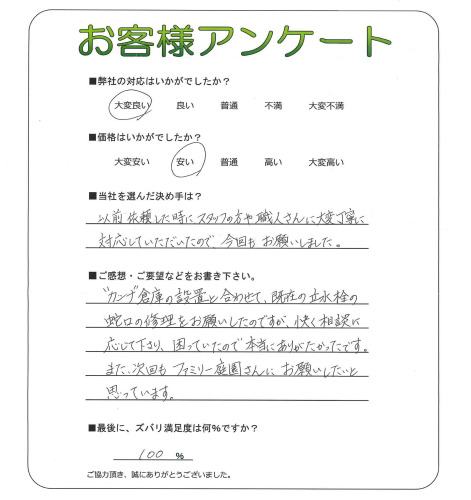 お客様アンケート
■弊社の対応はいかがでしたか？
大変良い 良い 普通 不満 大変不満
■価格はいかがでしたか？
大変安い 安い 普通 高い 大変高い
■当社を選んだ決め手は？
以前依頼した時にスタッフの方や職人さんに大変丁寧に
対応していただいたので、今回もお願いしました。
■ご感想・ご要望などをお書き下さい。
ガレージ倉庫の設置と合わせて、既存の立水栓の
蛇口の修理をお願いしたのですが、快く相談に
応じて下さり、困っていたので本当にありがたかったです。
また、次回もファミリー庭園さんにお願いしたいと
思っています。
■最後に、ズバリ満足度は何%ですか？
100 %
ご協力頂き、誠にありがとうございました。